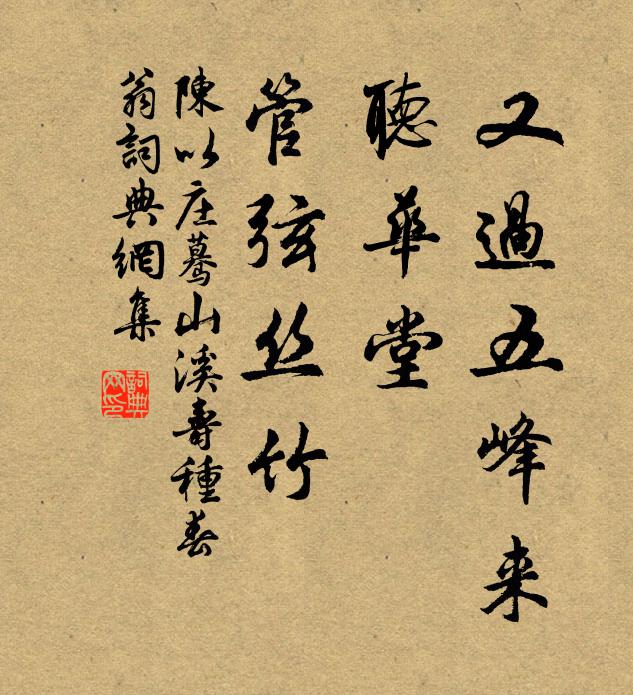 又過五峰来
聽華堂
管弦丝竹
陳以庄驀山溪壽種春
翁詞典網集
詞典網印